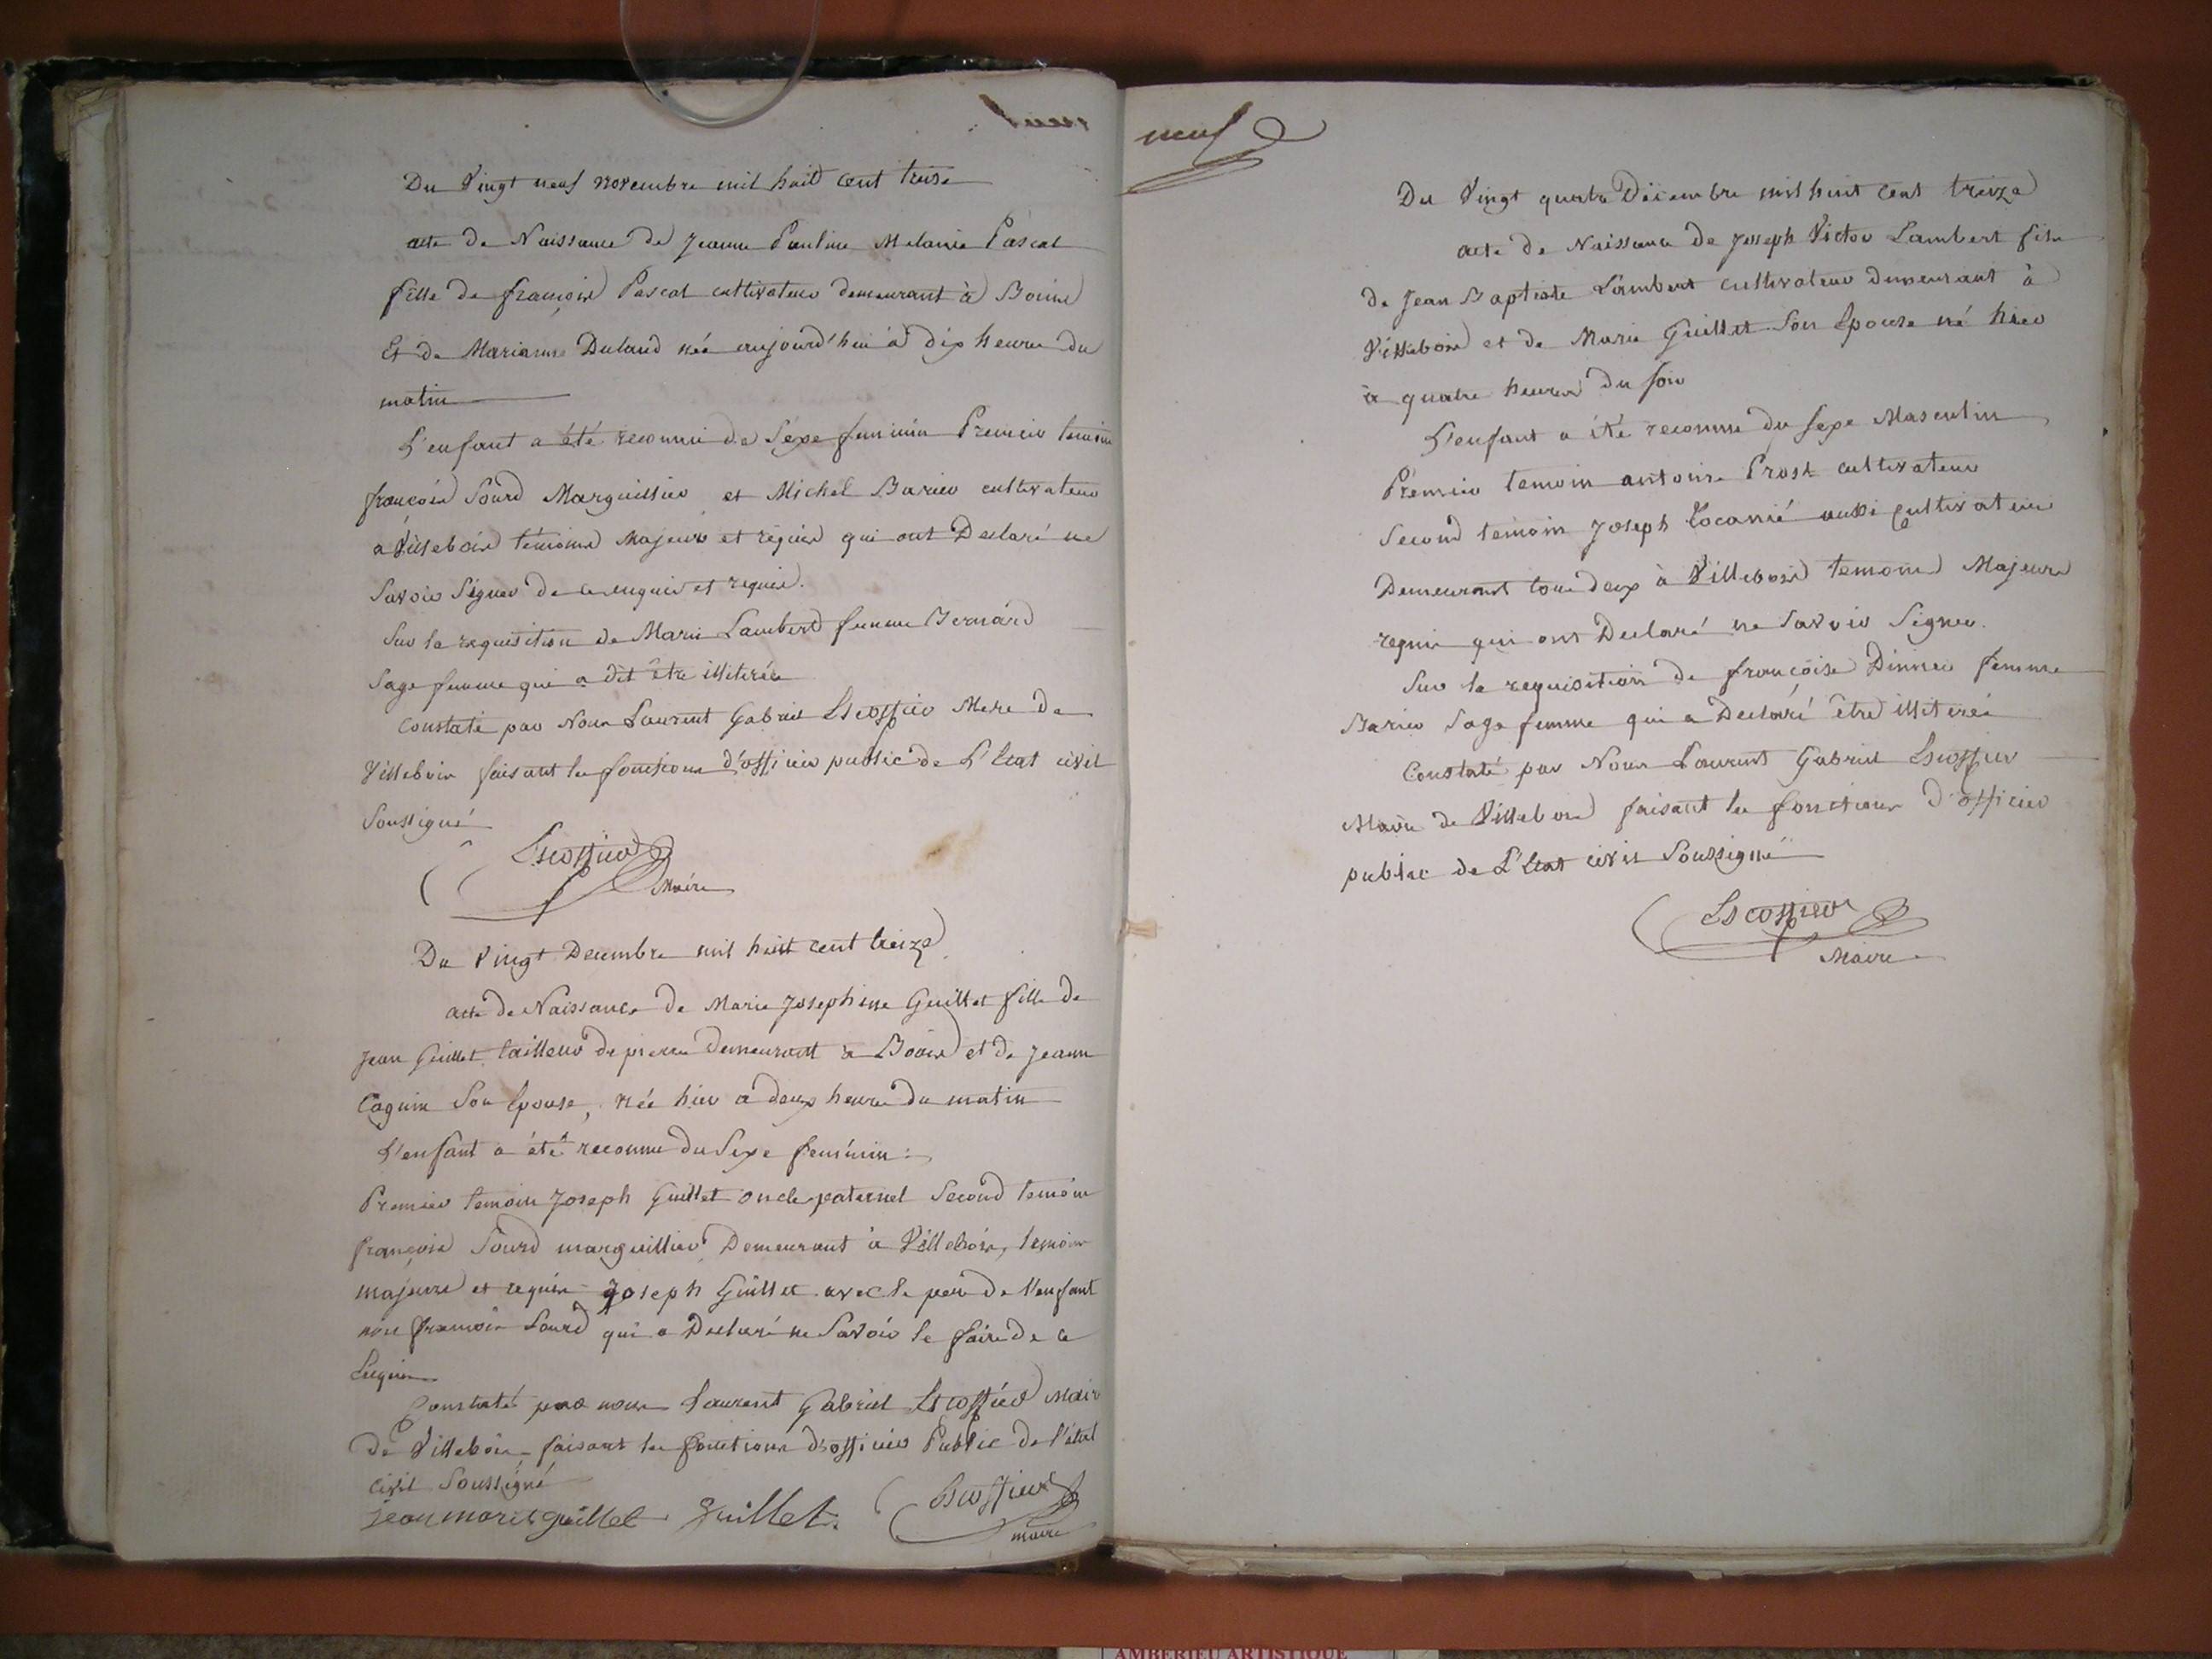 Du Vingt neuf novembre mil huit cent treise
acte de Naissance de Jeanne Pauline Melanie Pascal
fille de françois Pascal cultivateur demeurant à
Et de Marianne Dulaud née aujourd'hui à dix heures du
matin
L'enfant a été reconnu de Sexe feminin Premier temoin
françois Sourd Marguillier et Michel Barier cultivateur
a Villebois témoins Majeurs et requis qui ont Declaré ne
Savoir Signer de ce enquis et requis.
Sur la requisition de Marie Lambert femme Bernard
Sage femme qui a dit être illiterée
Constaté par Nous Laurent Gabriel Escoffier Mere de
Villebois faisant les fonctions d'officier public de L'Etat civil
Soussigné
Escoffier
Maire
Du Vingt Decembre mil huit cent treize
acte de Naissance de Marie Josephine Guillet fille de
Jean Guillet tailleur de pierre demeurant a et de Jeanne
Caquin Son Epouse, née hier a deux heures du matin
L'enfant a été reconnu du Sexe feminin
Premier temoin Joseph Guillet oncle paternel Second temoin
françois Sourd marguillier Demeurant à Villebois, temoins
majeurs et requis Joseph Guillet avec le pere de l'enfant
non françois Sourd qui a Declaré ne Savoir le faire de ce
Enquis
Constaté par nous Laurent Gabriel Escoffier Maire
de Villebois faisant les fonctions d'officier Public de l'état
civil Soussigné
jean marie guillet Guillet. Escoffier
maire
neuf
Du Vingt quatre Décembre mil huit cent treize
acte de Naissance de Joseph Victor Lambert fils
de Jean Baptiste Lambert cultivateur demeurant à
Villebois et de Marie Guillet Son Epouse né hier
à quatre heures du soir
L'enfant a été reconnu du sexe Masculin
Premier temoin antoine Prost cultivateur
Second temoin Joseph aussi cultivateur
Demeurant tous deux à Villebois temoins Majeurs
requis qui ont Declaré ne Savoir Signer.
Sur la requisition de françoise femme
Barier Sage femme qui a Declaré être illiterée
Constaté par Nous Laurent Gabriel Escoffier
Maire de Villebois faisant les fonctions d'officier
public de L'Etat civil Soussigné
Escoffier
Maire
AMBERIEU ARTISTIQUE